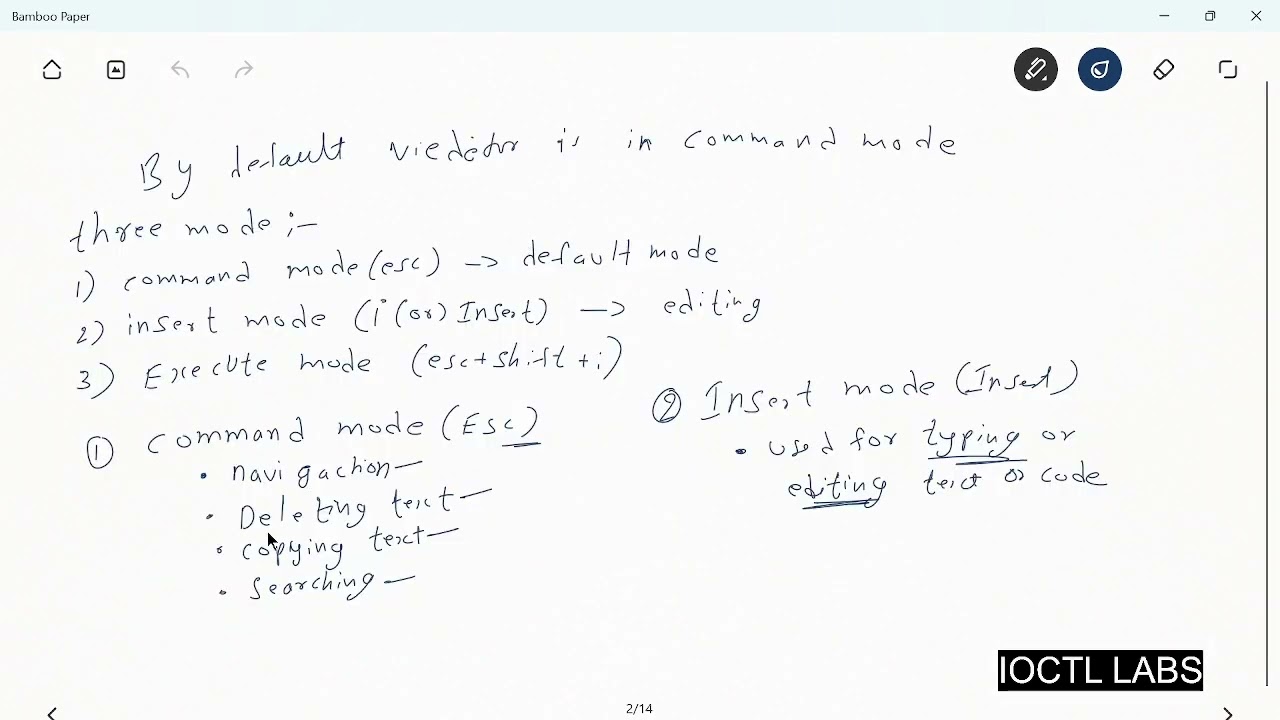 Bamboo Paper
By default vieditor is in command mode
three mode :-
1) command mode (esc) → default mode
2) insert mode (i (or) Insert) → editing
3) Execute mode (esc+shift+i)
① Command mode (Esc)
• navigaction
• Deleting text
• copying text
• Searching
② Insert mode (Insert)
• used for typing or
editing text or code
IOCTL LABS
2/14